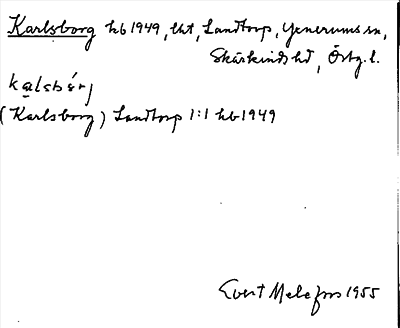 Karlsborg hb 1949, lht, Landtorp, Yxnerums sn,
Skärkinds hd, Östg. l.
kalsbǿrj
(Karlsborg) Landtorp 1:1 hb 1949
Evert Melefors 1955